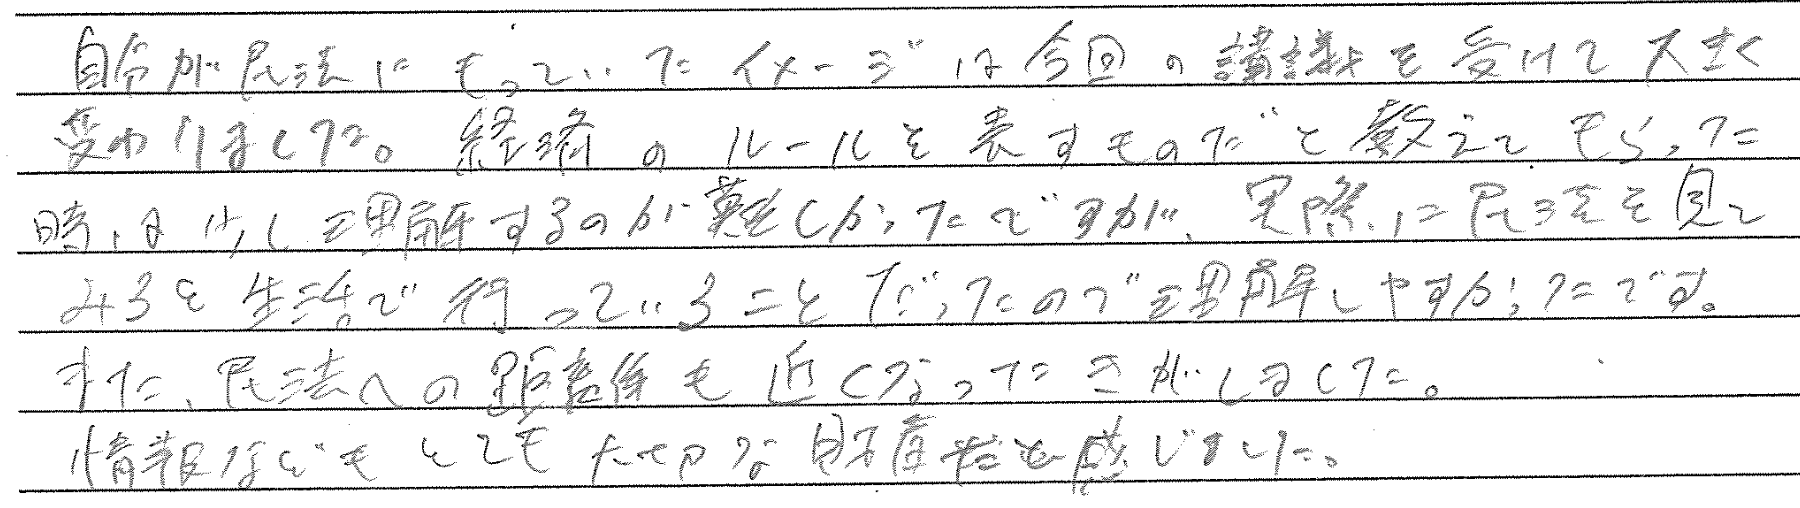 自分が民法にもっていたイメージは今回の講義を受けて大きく
変わりました。経済のルールを表すものだと教えてもらった
時は少し理解するのが難しかったですが、実際に民法を見て
みると生活で行っていることだったので理解しやすかったです。
また、民法への距離も近くなったきがしました。
情報などもとても大切な財産だと感じました。